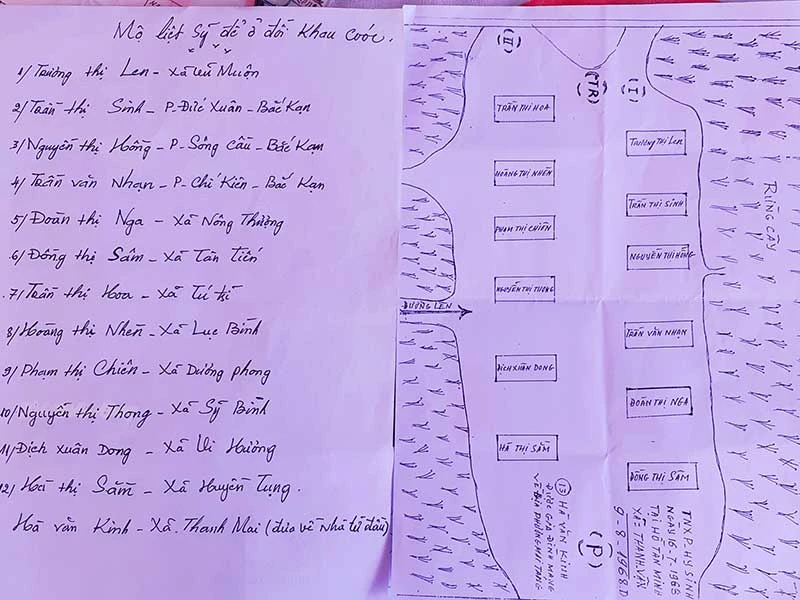 Mộ liệt sỹ để ở đồi Khau Cước.
1/ Trương thị Len - Xã Tú Muộn
2/ Trần thị Sinh - P- Đức Xuân - Bắc Kạn
3/ Nguyễn thị Hồng - P - Sông Cầu - Bắc Kạn
4/ Trần văn Nhạn - P - Chí Kiên - Bắc Kạn
5/ Đoàn thị Nga - Xã Nông Thượng
6/ Đồng thị Sâm - Xã Tân Tiến
7/ Trần thị Hoa - Xã Tú Trĩ
8/ Hoàng thị Nhén - Xã Lục Bình
9/ Phạm thị Chiên - Xã Dương phong
10/ Nguyễn thị Thong - Xã Sỹ Bình
11/ Địch Xuân Dong - Xã Vi Hương
12/ Hà thị Sằm - Xã Huyền Tụng.
Hà văn Kinh - Xã. Thanh Mai (đưa về nhà từ đầu)
(II)
(TR)
(I)
TRẦN THỊ HOA
HOÀNG THỊ NHÉN
PHẠM THỊ CHIÊN
NGUYỄN THỊ TƯƠNG
ĐỊCH XUÂN DONG
HÀ THỊ SẰM
TRƯƠNG THỊ LEN
TRẦN THỊ SINH
NGUYỄN THỊ HỒNG
TRẦN VĂN NHẠN
ĐOÀN THỊ NGA
ĐỒNG THỊ SÂM
RỪNG CÂY
ĐƯỜNG LÊN
(13) HÀ VĂN KINH
ĐƯỢC GIA ĐÌNH MANG
VỀ ĐỊA PHƯƠNG MAI TÁNG
(P)
TNXP HY SINH
NGÀY 16-7-1968
TẠI HỐ TÂN MINH
XÃ THANH VẬN
9-8-1968 D